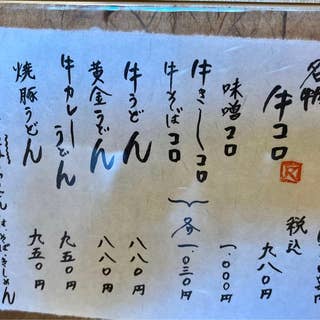 名物
牛コロ
税込
九八〇円
味噌コロ
一、〇〇〇円
牛きしコロ
牛そばコロ
各
一、〇三〇円
牛うどん
八八〇円
黄金うどん
八八〇円
牛カレーうどん
九五〇円
焼豚うどん
九五〇円